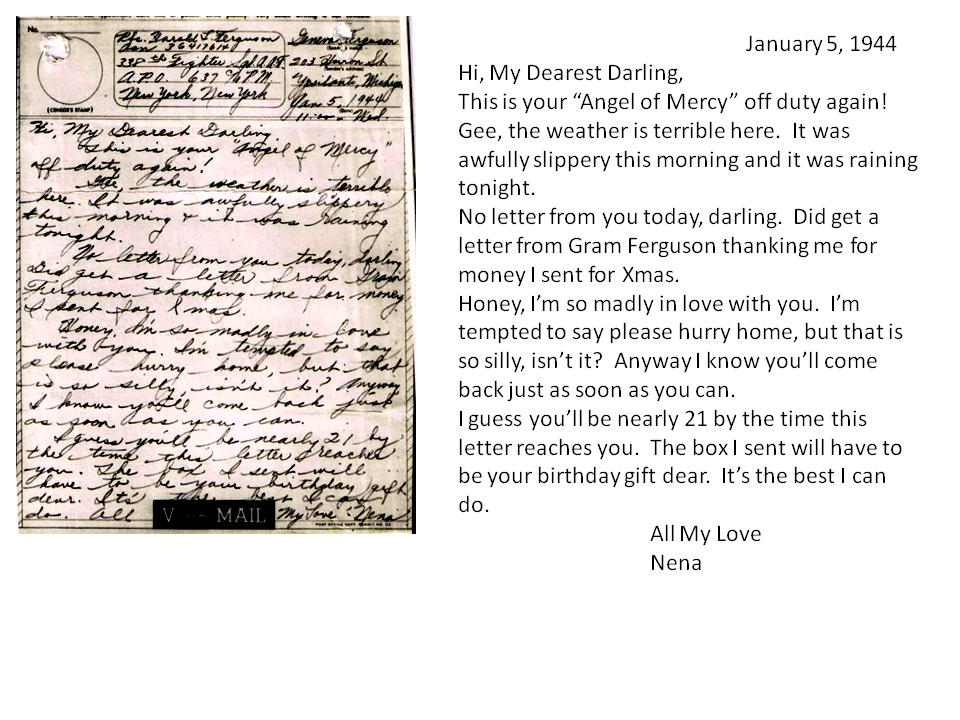 No.
(CENSOR'S STAMP)
Pfc. Harold J. Ferguson
Asn 36417614
Fighter
A.P.O. 637 % P.M.
New York, New York
Geneva Ferguson
203 Huron St
Ypsilanti, Michigan
Jan 5, 1944
Wed.
Hi, My Dearest Darling,
This is your "Angel of Mercy"
off duty again!
Gee, the weather is terrible
here. It was awfully slippery
this morning & it was raining
tonight.
No letter from you today, darling.
Did get a letter from Gram
Ferguson thanking me for money
I sent for Xmas.
Honey, I'm so madly in love
with you. I'm tempted to say
please hurry home, but that
is so silly, isn't it? Anyway
I know you'll come back just
as soon as you can.
I guess you'll be nearly 21 by
the time this letter reaches
you. The box I sent will
have to be your birthday gift
dear. It's the best I can
do. All My Love Nena
V - MAIL
January 5, 1944
Hi, My Dearest Darling,
This is your “Angel of Mercy” off duty again!
Gee, the weather is terrible here.  It was
awfully slippery this morning and it was raining
tonight.
No letter from you today, darling.  Did get a
letter from Gram Ferguson thanking me for
money I sent for Xmas.
Honey, I’m so madly in love with you.  I’m
tempted to say please hurry home, but that is
so silly, isn’t it?  Anyway I know you’ll come
back just as soon as you can.
I guess you’ll be nearly 21 by the time this
letter reaches you.  The box I sent will have to
be your birthday gift dear.  It’s the best I can
do.
All My Love
Nena